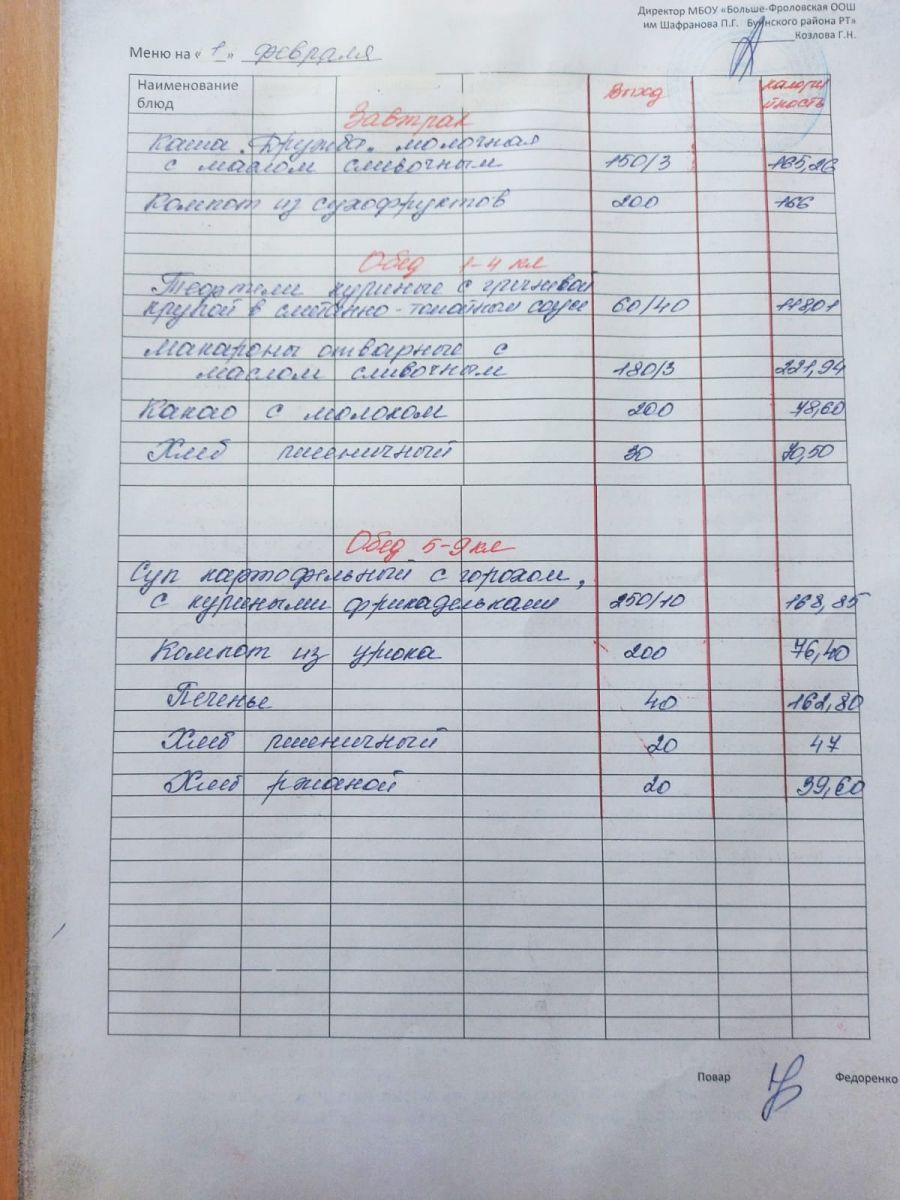 Директор МБОУ «Больше-Фроловская ООШ
им Шафранова П.Г. Буинского района РТ»
Козлова Г.Н.
Меню на « 1 » февраля
Наименование блюд Выход калорийность
Завтрак
Каша "Дружба" молочная
с маслом сливочным 150/3 165,26
Компот из сухофруктов 200 166
Обед 1-4 кл
Тефтели куриные с гречневой
крупой в сметанно-томатном соусе 60/40 118,01
Макароны отварные с
маслом сливочным 180/3 221,94
Какао с молоком 200 78,60
Хлеб пшеничный 30 70,50
Обед 5-9 кл
Суп картофельный с горохом,
с куриными фрикадельками 250/10 168,85
Компот из урюка 200 76,40
Печенье 40 162,80
Хлеб пшеничный 20 47
Хлеб ржаной 20 39,60
Повар Федоренко